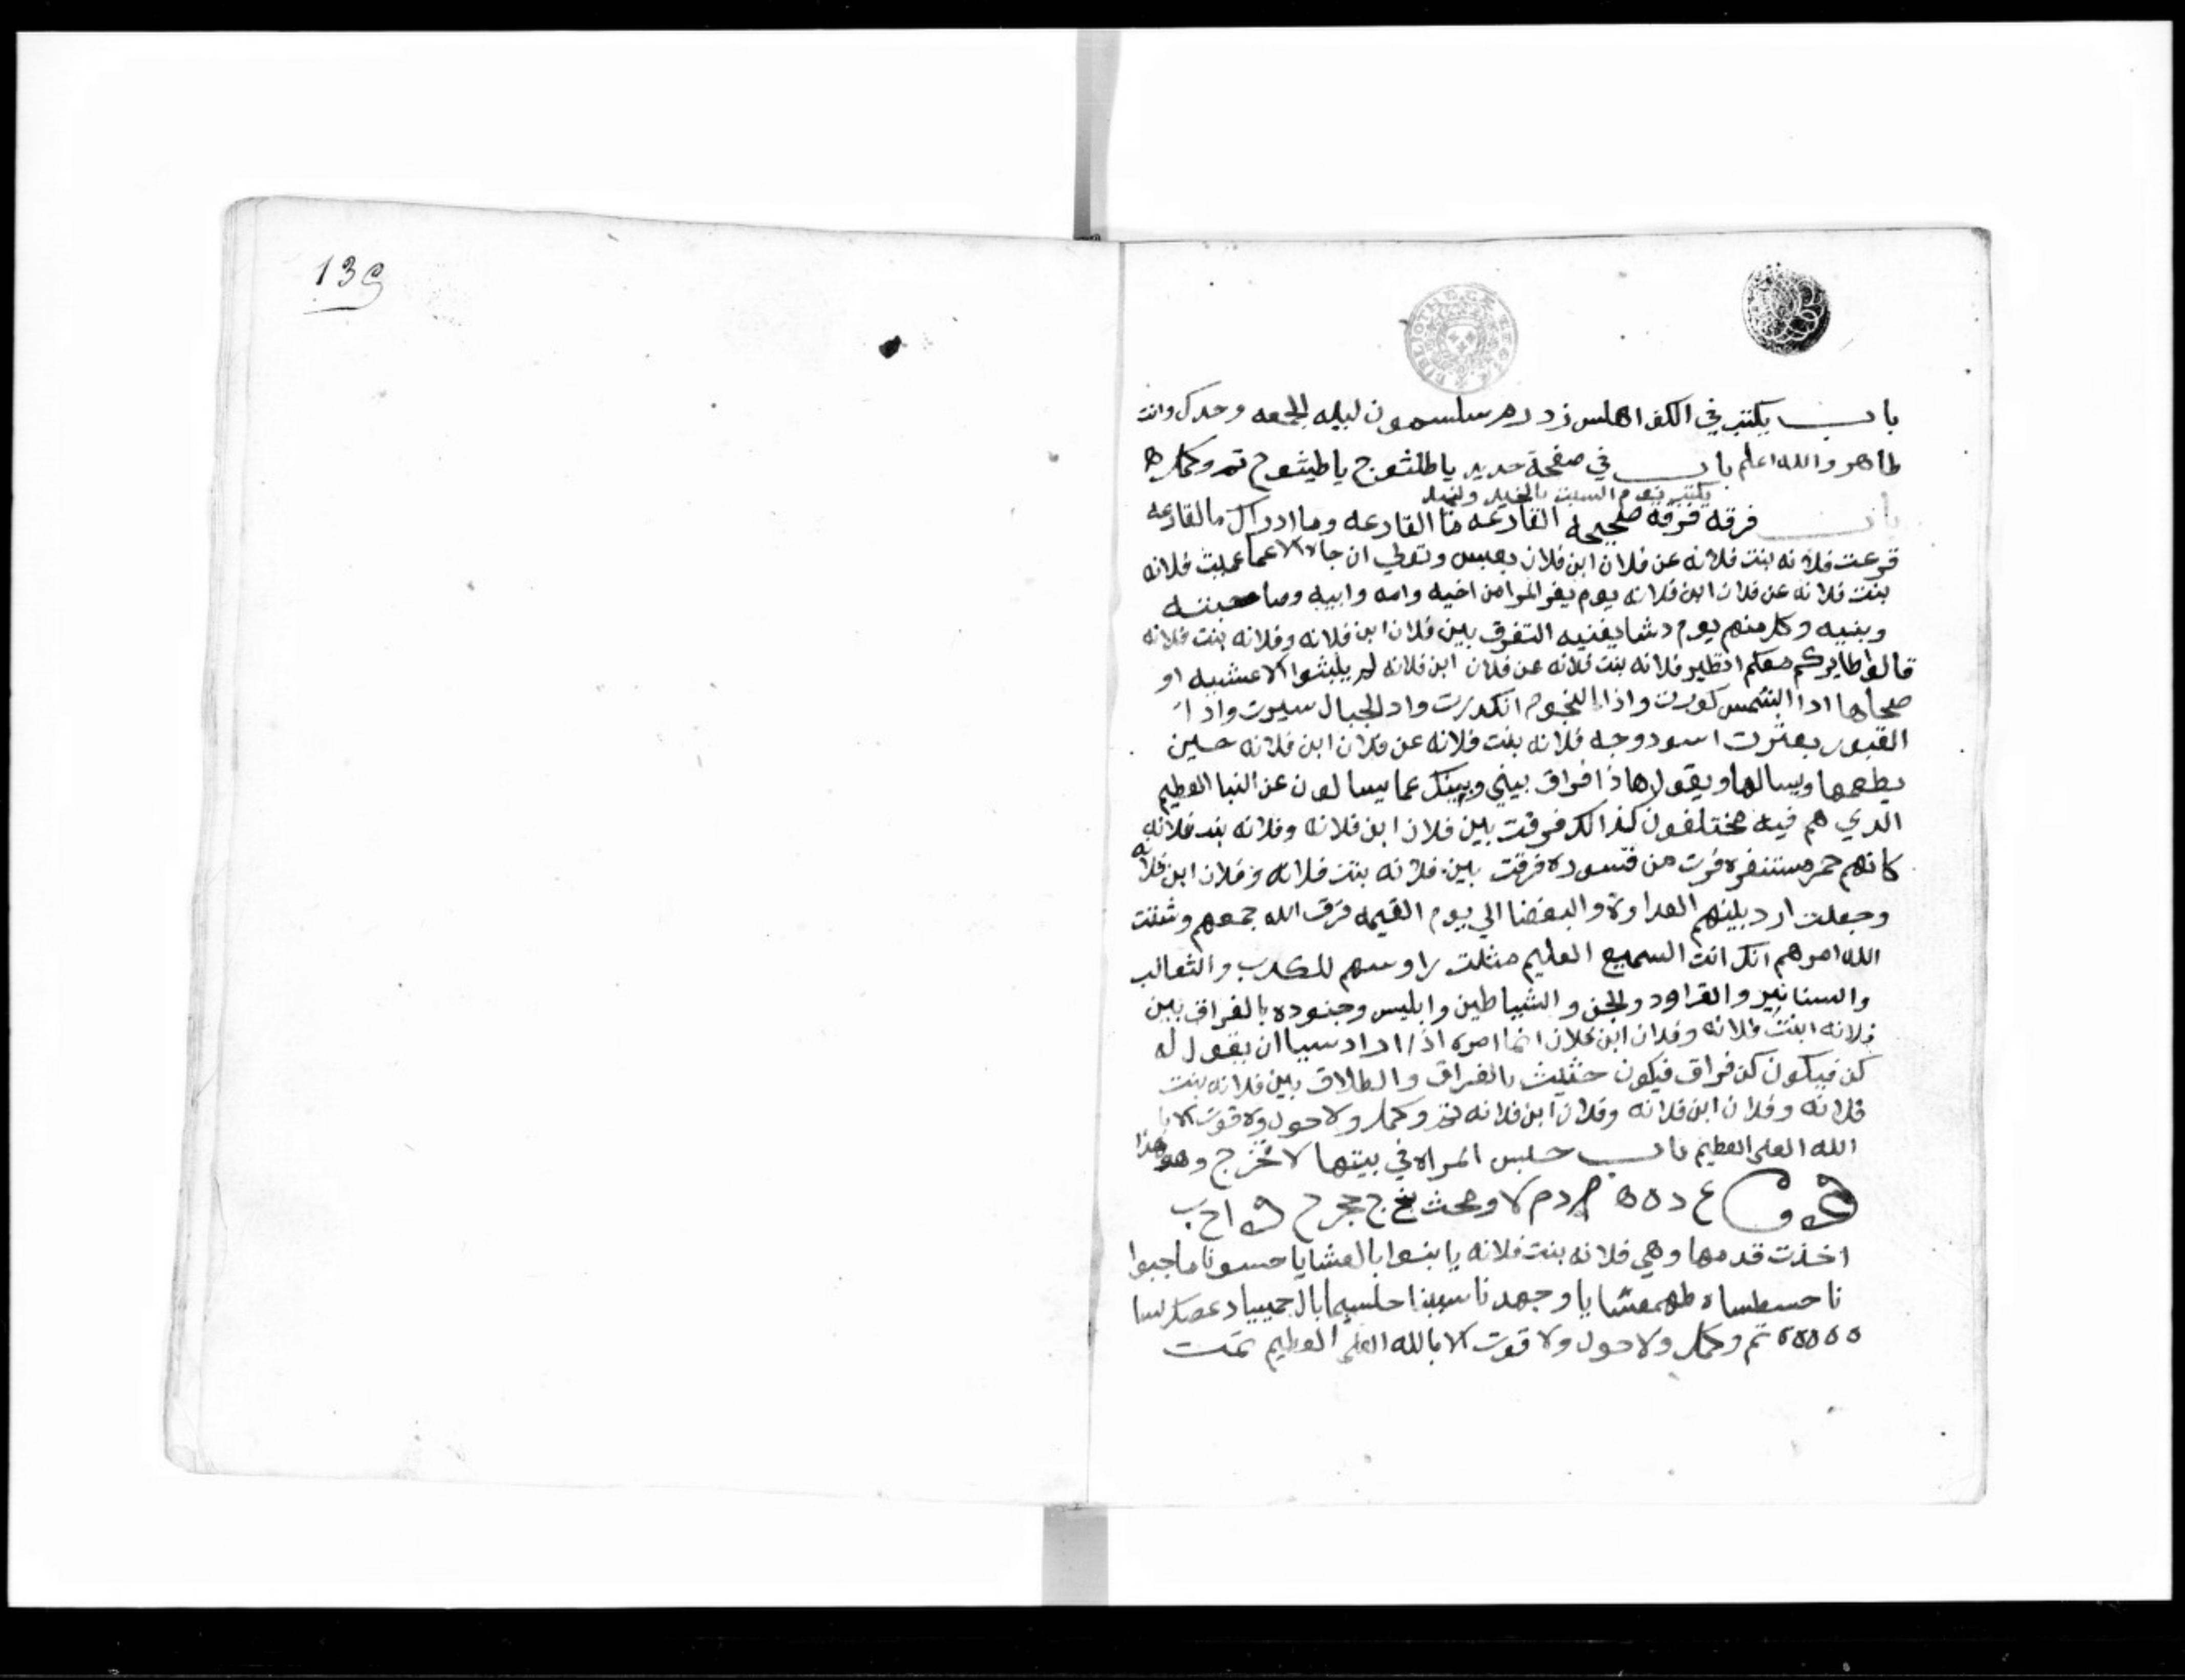 139
BIBLIOTHECAE REGIAE
باب يكتب في الكف اهلس زددهر سلسمون ليله الجمعه وحدك وانت
طاهر والله اعلم باب في صفحة حديد ياطلشوج ياطيشوح تم وكمل ه
يكتب يوم السبت
باب فرقه فرقه صحيحه القارعه ما القارعه وما ادراك ما القارعه
قرعت فلانه بنت فلانه عن فلان ابن فلان بعبس وتولي ان جاه الاعما عميت فلانه
بنت فلانه عن فلان ابن فلانه يوم يفر المرا من اخيه وامه وابيه وصاحبته
وبنيه وكل منهم يوم دشا يغنيه التفرق بين فلان ابن فلانه وفلانه بنت فلانه
قالوا طايركم معكم اتطير فلانه بنت فلانه عن فلان ابن فلانه لم يلبثوا الا عشيه او
ضحاها ادا الشمس كورت واذا النجوم انكدرت واد الجبال سيرت واذا
القبور بعثرت اسود وجه فلانه بنت فلانه عن فلان ابن فلانه حين
يطعمها ويسالها ويقول هاذا فراق بيني وبينك عما يسالون عن النبا العظيم
الدي هم فيه مختلفون كذالك فرقت بين فلان ابن فلانه وفلانه بنت فلانه
كانهم حمر مستنفره فرت من قسوره فرقت بين فلانه بنت فلانه وفلان ابن فلانه
وجعلت ارد بينهم العداوة والبغضا الي يوم القيمه فرق الله جمعهم وشتت
الله امرهم انك انت السميع العليم مثلت راوسهم للكلاب والثعالب
والسنانير والقراود والجن والشياطين وابليس وجنوده بالفراق بين
فلانه ابنت فلانه وفلان ابن فلان انما امره اذا اراد سيا ان يقول له
كن فيكون كن فراق فيكون حثيث بالفراق والطلاق بين فلانه بنت
فلانه وفلان ابن فلانه وفلان ابن فلانه وكمل ولا حول ولا قوت الا با
الله العلي العظيم باب حبس المراه في بيتها لا تخرج وهو هذا
اخذت قدمها وهي فلانه بنت فلانه
تم وكمل ولا حول ولا قوت الا بالله العلي العظيم تمت